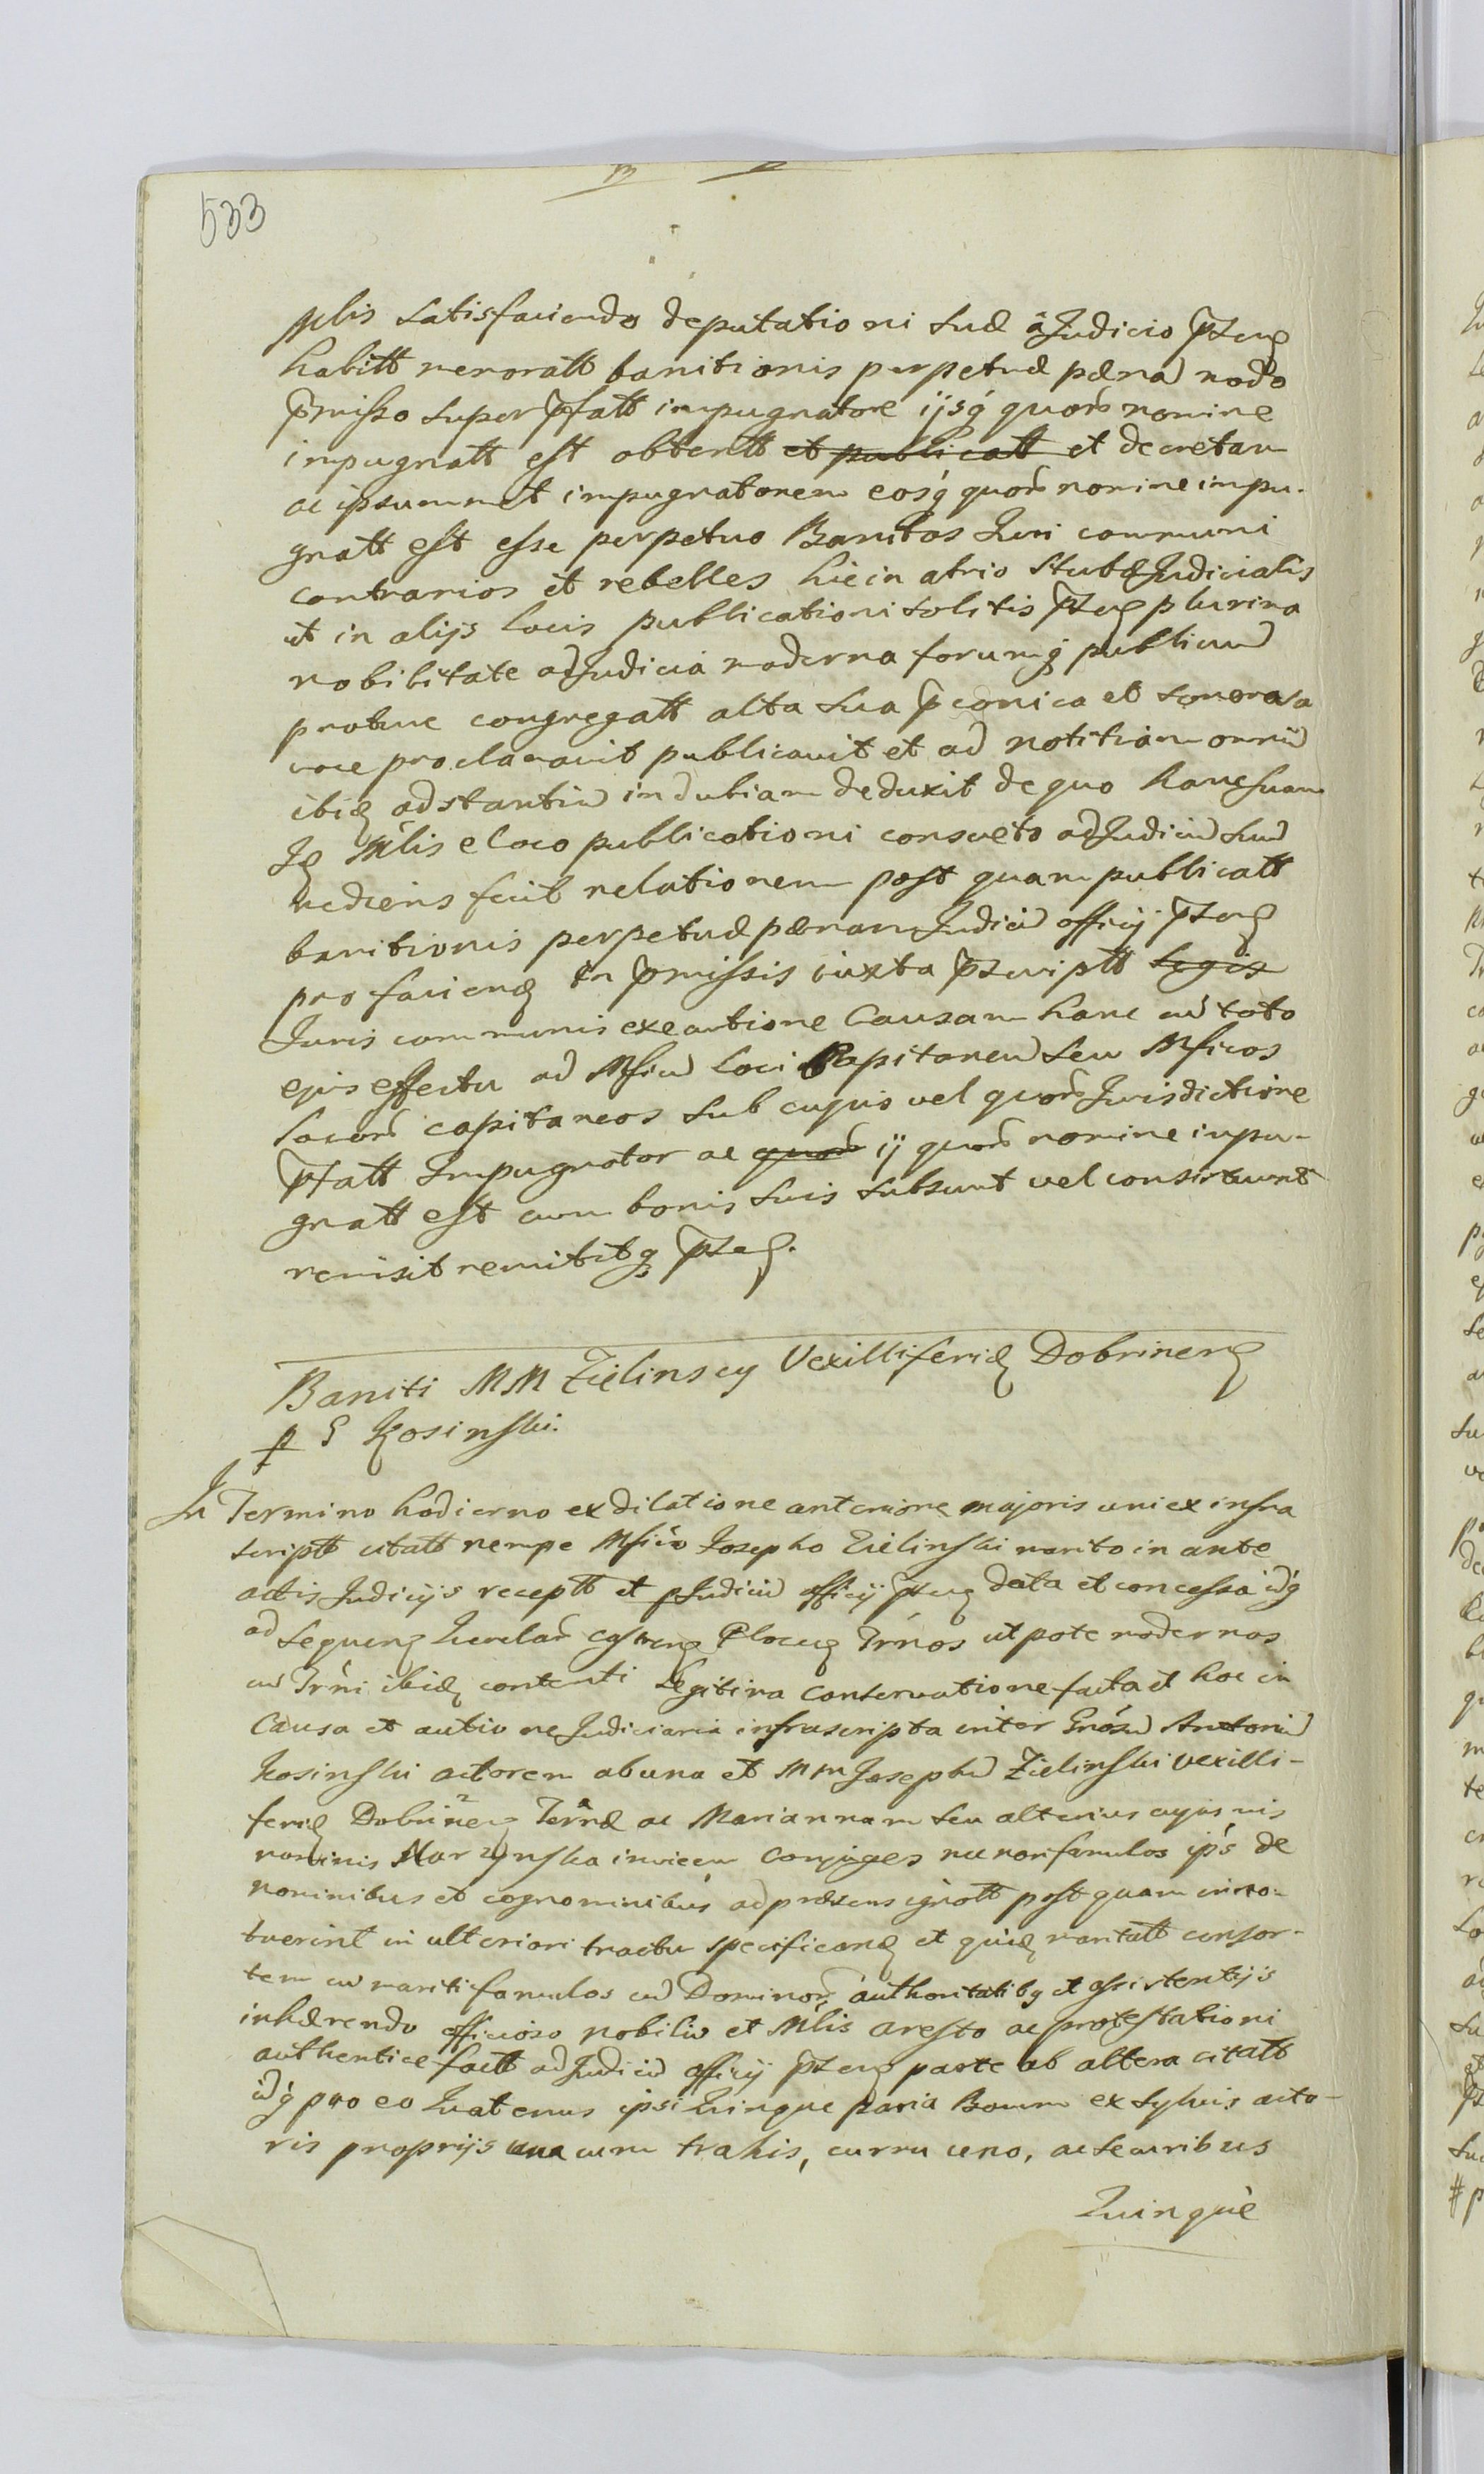 533
satisfaciendo deputationi suæ à Judicio pteng
habitt memoratt banitionis perpetuæ pænã modo
pmisso super pfatt impugnatore ijsq́ quorũ nomine
impugnatt est obtentt et publicatt et decretam
ac ipsummet impugnatorem eosq́ quorũ nomine impu-
gnatt est esse perpetuo Banitos Juri communi
contrarios et rebelles hic in atrio stubæ Judicialis
et in alijs locis publicationi solitis pteng plurima
nobilitate ad Judicia moderna forumq́ publicum
protunc congregatt alta sua pconica et sonorosa
voce proclamavit publicavit et ad notitiam omniũ
ibid adstantiũ indubiam deduxit de quo hanc suam
Id Mlis e loco publicationi consveto ad Judiciũ suũ
rediens fecit relationem post quam publicatt
banitionis perpetuæ pænam Judiciũ officij pteng
pro faciend in pmissis iuxta pscriptt legis
Juris communis executione Causam hanc cũ toto
ejus effectu ad Mficũ loci Capitaneũ seu Mficos
locorũ capitaneos sub cujus vel quorũ Jurisdictione
pfatt Impugnator ac quorũ ij quorũ nomine impu-
gnatt est cum bonis suis subsunt vel consistunt
remisit remititq́ pteng.
Baniti MM Zielinscy Vexilliferid Dobrineng
p G Kosinski.
In Termino hodierno ex dilatione anteriore majoris uni ex infra
scriptt citatt nempe Mficò Josepho Zielinski marito in ante
actis Judicijs receptt et p Judiciũ officij pteng data et concessa idq́
ad sequeng querelarũ castreng Ploceng Trnos utpote modernos
cũ Trni ibid contenti Legitima conservatione facta et hoc in
Causa et actione Judiciaria infrascripta inter Gnosũ Antoniũ
Kosinski actorem ab una et Mm Josephũ Zielinski vexilli-
ferid Dobrineng Terræ ac Mariannam seu alterius cujusvis
nominis Marzynska invicem Conjuges nec non famulos ips de
nominibus et cognominibus ad præsens ignott post quam inno-
tuerint in ulteriori tractu specificand et quid maritatt consor-
tem cũ mariti famulos cũ Dominorũ authoritatibq et assistentijs
inhærendo officioso nobiliũ et Mlis aresto ac protestationi
authentice factt ad Judiciũ officij pteng parte ab altera citatt
idq́ pro eo Quatenus ipsi quinque paria Boum ex sylvis acto-
ris proprijs una cum trahis, curru uno, ac securibus
Quinquè